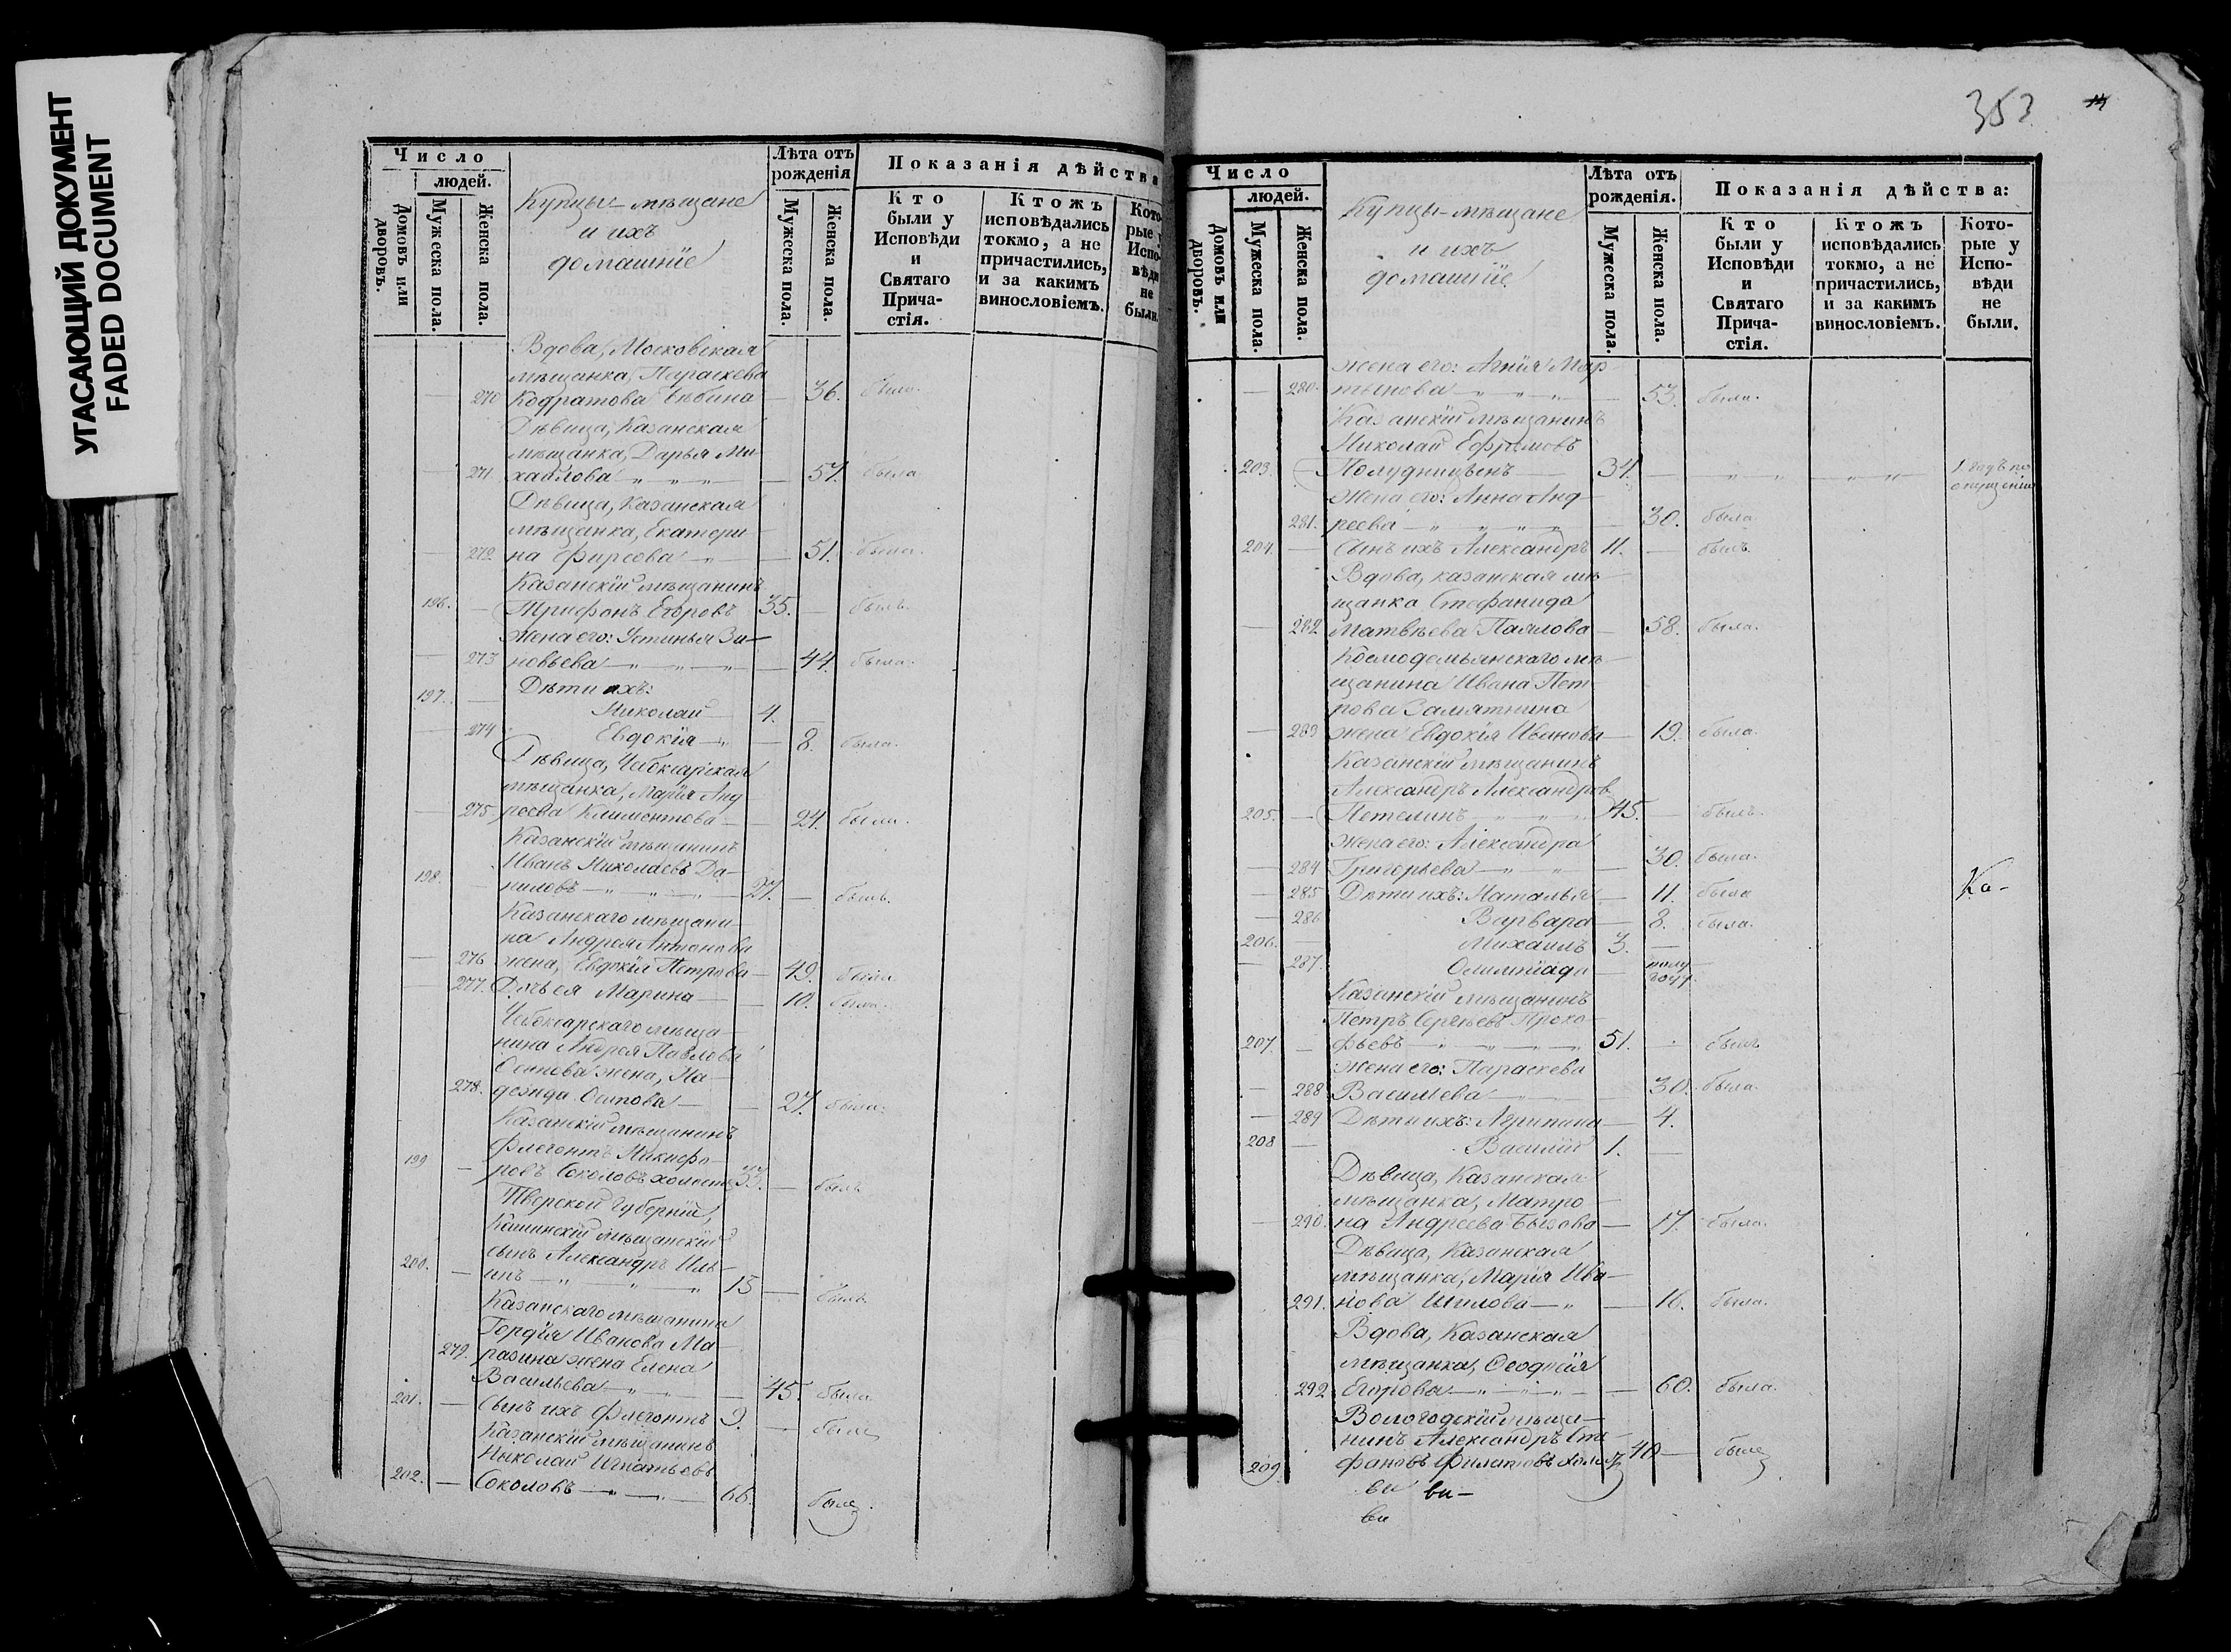 УГАСАЮЩИЙ ДОКУМЕНТ
FADED DOCUMENT
Число
людей.
Домовъ или дворовъ.
Мужеска пола.
Женска пола.
Купцы-мѣщане
и ихъ
домашніе
Лѣта отъ
рожденія
Мужеска пола.
Женска пола.
Показанія дѣйства
Кто
были у
Исповѣди
и
Святаго
Прича-
стія.
Ктожъ
исповѣдались
токмо, а не
причастились,
и за какимъ
винословіемъ.
Кото-
рые у
Испо-
вѣди
не
были.
Вдова, Московская
мѣщанка, Параскева
270 Кодратова 36. была.
Дѣвица, Казанская
мѣщанка, Дарья Ми-
271. хайлова 57. была
Дѣвица, Казанская
мѣщанка, Екатери-
272. на Фирсова 51. была.
Казанскій мѣщанинъ
196. Трифонъ Егоровъ 35. былъ.
Жена его: Устинья Зи-
273 новьева 44. была.
197. Дѣти ихъ:
Николай 4.
274 Евдокія 8. была.
Дѣвица, Чебоксарская
мѣщанка, Марія Анд
275. реева Климентова 24. была.
Казанскій мѣщанинъ
Иванъ Николаевъ Да-
198. ниловъ 27. былъ.
Казанскаго мѣщани-
на Андрея Антонова
276 жена, Евдокія Петрова 49. была
277. Дочь ея Марина 10. была.
Чебоксарскаго мѣща-
нина Андрея Павлова
Осипова жена, На-
278. дежда Осипова 27. была.
Казанскій мѣщанинъ
Флегонтъ Никифо-
199 ровъ Соколовъ холостъ 33. былъ
Тверской Губерніи,
Кашинскій мѣщанскій
сынъ Александръ Иль-
200. инъ 15 былъ
Казанскаго мѣщанина
Гордія Иванова Ма-
279. разина жена Елена
Васильева 45. была
201. Сынъ ихъ Флегонтъ 9. былъ
Казанскій мѣщанинъ
Николай Игнатьевъ
202. Соколовъ 66. былъ.
353
Число
людей.
Домовъ или дворовъ.
Мужеска пола.
Женска пола.
Купцы-мѣщане
и ихъ
домашніе
Лѣта отъ
рожденія.
Мужеска пола.
Женска пола.
Показанія дѣйства:
Кто
были у
Исповѣди
и
Святаго
Прича-
стія.
Ктожъ
исповѣдались
токмо, а не
причастились,
и за какимъ
винословіемъ.
Кото-
рые у
Испо-
вѣди
не
были.
жена его: Агнія Мар-
280. тынова 53. была.
Казанскій мѣщанинъ
Николай Ефремовъ
203. 34. 1. годъ по
опущенію
Жена его: Анна Анд-
281. реева 30. была
204. Сынъ ихъ Александръ 11. былъ.
Вдова, казанская мѣ-
щанка Стефанида
282 Матвѣева Павлова 58. была.
Козмодемьянскаго мѣ-
щанина Ивана Пет-
рова Замятнина
283 жена Евдокія Иванова 19. была.
Казанскій мѣщанинъ
Александръ Александров
205. Петелинъ 45. былъ.
жена его: Александра
284 Григорьева 30. была.
285 Дѣти ихъ: Наталья 11. была
Ка-
286 Варвара 8. была.
206. Михаилъ 3.
287. Олимпіада полу
году.
Казанскій мѣщанинъ
Петръ Сергѣевъ Проко-
207. фьевъ 51. былъ
жена его: Параскева
288 Васильева 30. была.
289 Дѣти ихъ: Агрипина 4.
208 Василій 1.
Дѣвица, Казанская
мѣщанка, Матро-
290. на Андреева Быкова 17. была.
Дѣвица, Казанская
мѣщанка, Марія Ива-
291. нова Шилова 16. была.
Вдова, Казанская
мѣщанка, Ѳеодосія
292 Егорова 60. была.
Вологодскій мѣща-
нинъ Александръ Сте-
209 фановъ Филатовъ 40 былъ
ви ви-
ви